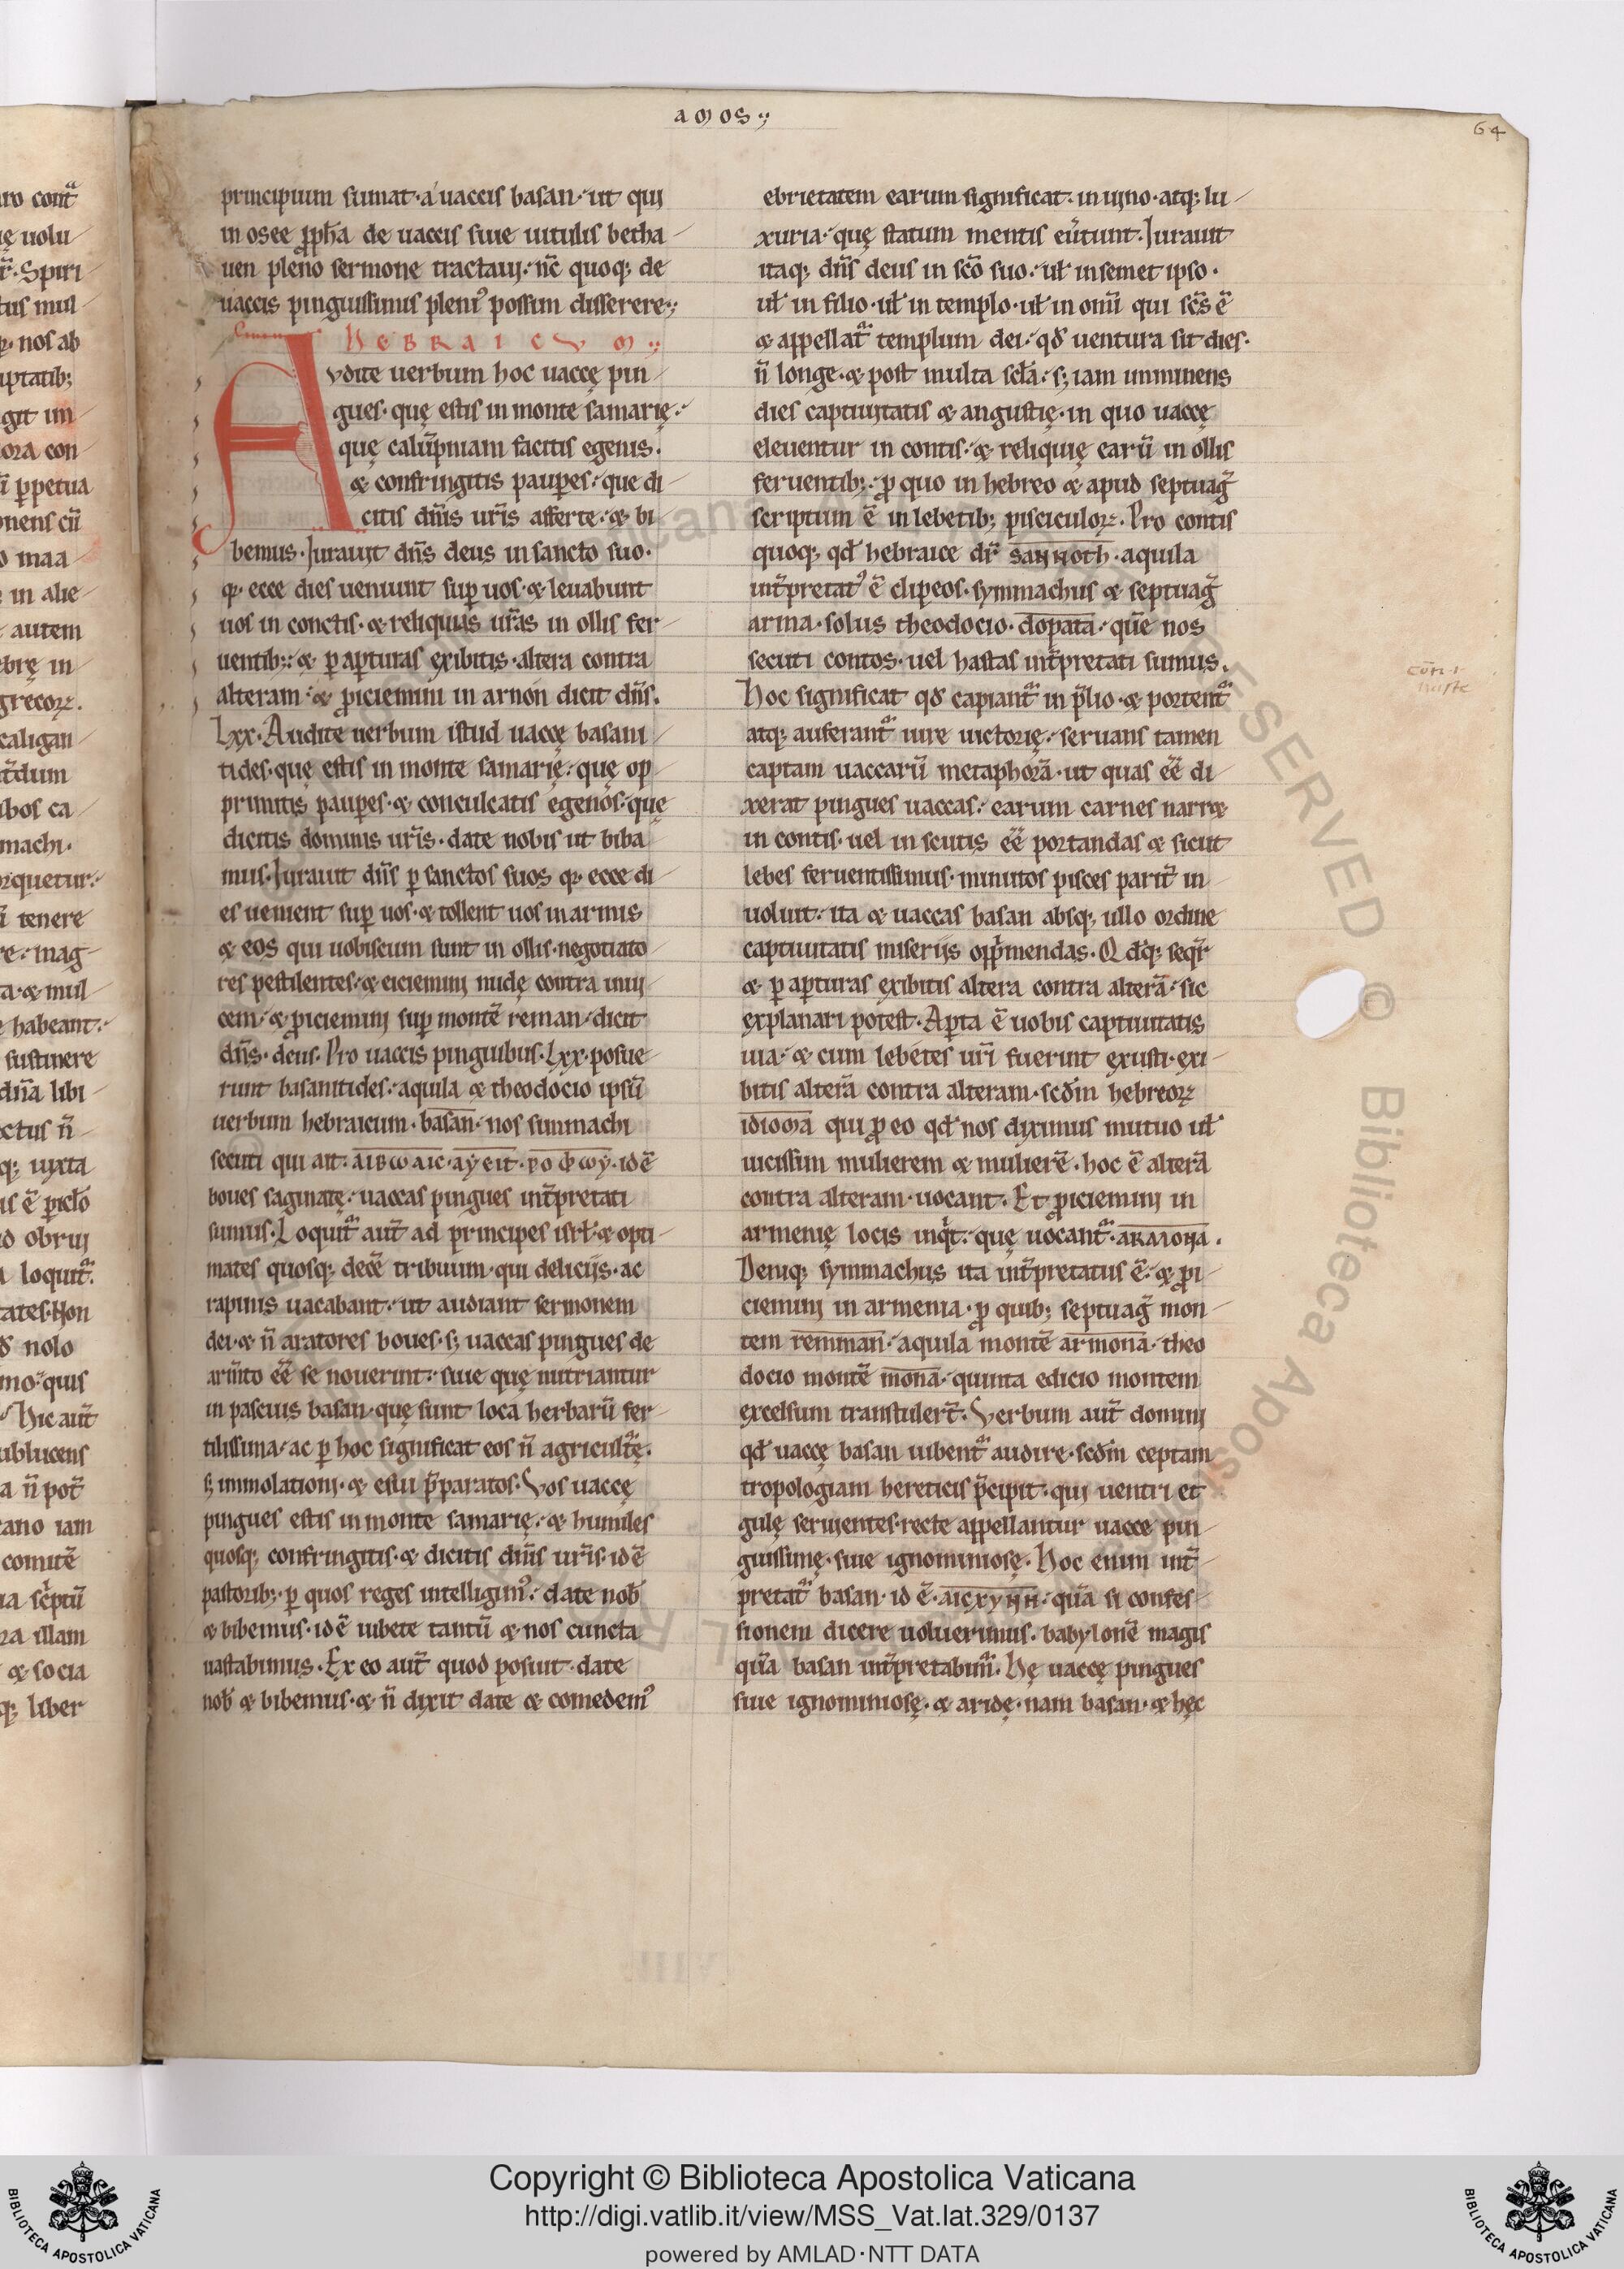 amos
64
principium sumat· a uaccis basan· ut qui
in osee ꝓph̄a de uaccis siue uitulis betha
uen pleno sermone tractaui· nc̄ quoq; de
uaccis pinguissimis pleni᾽ possim disserere
HEBRAICVM
Avdite uerbum hoc uaccę pin
gues· quę estis in monte samarię
quę calūpniam facitis egenis·
& confringitis pauꝑes· que di
citis dn̄is ur̄is afferte· & bi
bemus· Iurauit dn̄s deus in sancto suo·
q̇· ecce dies uenient suꝑ uos· & leuabunt
uos in conctis· & reliquias ur̄as in ollis fer
uentib;· & ꝑ aꝑturas exibitis· altera contra
alteram· & ꝓiciemini in arnon dicit dn̄s·
Lxx· Audite uerbum istud uaccę basani
tides· quę estis in monte samarię· quę op
primitis pauꝑes· & conculcatis egenos· quę
dicitis dominis ur̄is· date nobis ut biba
mus· Iurauit dn̄s ꝑ sanctos suos q̇· ecce di
es uenient suꝑ uos· & tollent uos in armis
& eos qui uobiscum sunt in ollis· negotiato
res pestilentes· & eiciemini nudę contra inui
cem· & ꝓiciemini suꝑ montē reman· dicit
dn̄s· deus· Pro uaccis pinguibus· Lxx· posue
runt basanitides· aquila & theodocio ipsū
uerbum hebraicum· basan· nos simmachi
secuti qui ait· idē
boues saginatę· uaccas pingues int̄pretati
sumus· Loquit᷑ aut̄ ad principes isrl̄· & opti
mates quosq; decē tribuum· qui delicijs· ac
rapinis uacabant· ut audiant sermonem
dei· & n̄ aratores boues· s; uaccas pingues de
arm̄to eē̄ se nouerint· siue quę nutriantur
in pascuis basan· quę sunt loca herbarū fer
tilissima· ac ꝑ hoc significat eos n̄ agricult̄ę·
s; immolationi· & esui p̄paratos· Vos uaccę
pingues estis in monte samarię· & humiles
quosq; confringitis· & dicitis dn̄is ur̄is· idē
pastorib;· ꝑ quos reges intelligim᾽· date nob̄
& bibemus· idē iubete tantū & nos cuncta
uastabimus· Ex eo aut̄ quod posuit· date
nob̄ & bibemus· & n̄ dixit date & comedem᾽
ebrietatem earum significat· in uino· atq; lu
xuria· quę statum mentis eu̓tunt· Iurauit
itaq; dn̄s deus in sc̄o suo· ul̄ in semet ipso·
ul̄ in filio· ul̄ in templo· ul̄ in omī qui sc̄s ē
& appellat᷑ templum dei· qđ uentura sit dies·
n̄ longe· & post multa scl̄a· s; iam imminens
dies captiuitatis & angustię· in quo uaccę
eleuentur in contis· & reliquię earū in ollis
feruentib;· ꝓ quo in hebreo & apud septuag̃
scriptum ē in lebetib; pisciculoꝝ· Pro contis
quoq; qđ hebraice dr̄ sannoth· aquila
int̄pretat᾽ ē clipeos· symmachus & septuag̃
arma· solus theodocio· dopata· quē nos
secuti contos· uel hastas int̄pretati sumus·
Hoc significat qđ capiant᷑ in p̄lio· & portent᷑
atq; auferant᷑ iure uictorię· seruans tamen
captam uaccarū metaphorā· ut quas eē̄ di
xerat pingues uaccas· earum carnes narr&
in contis· uel in scutis eē̄ portandas & sicut
lebes feruentissimus· minutos pisces parit̄ in
uoluit· ita & uaccas basan absq; ullo ordine
captiuitatis miserijs opp̓mendas· Qdq; seqr̄
& ꝑ aꝑturas exibitis altera contra alterā· sic
explanari potest· Aꝑta ē uobis captiuitatis
uia· & cum lebetes ur̄i fuerint exusti· exi
bitis alterā contra alteram· scđm hebreoꝝ
idioma qui ꝓ eo qđ nos diximus mutuo ul̄
uicissim mulierem & mulierē· hoc ē alterā
contra alteram· uocant· Et ꝓiciemini in
armenię locis inq̓t· quę uocant᷑·
Deniq; symmachus ita int̄pretatus ē· & ꝓi
ciemini in armenia· ꝓ quib; septuag̃ mon
tem remman· aquila montē armona· theo
docio montē mona· quinta edicio montem
excelsum transtuler̄t· Verbum aut̄ domini
qđ uaccę basan iubent᷑ audire· scđm ceptam
tropologiam hereticis p̄cipit· qui uentri et
gulę seruientes· recte appellantur uacce pin
guissimę· siue ignominiosę· Hoc enim int̄
pretat᷑ basan· id ē· αιcχyνη· quā si confes
sionem dicere uoluerimus· babylonē magis
quā basan int̄pretabim᷑· Hę uaccę pingues
siue ignominiosę· & aridę· nam basan· & hęc
Copyright © Biblioteca Apostolica Vaticana
http://digi.vatlib.it/view/MSS_Vat.lat.329/0137
powered by AMLAD·NTT DATA
BIBLIOTECA APOSTOLICA VATICANA
BIBLIOTECA APOSTOLICA VATICANA